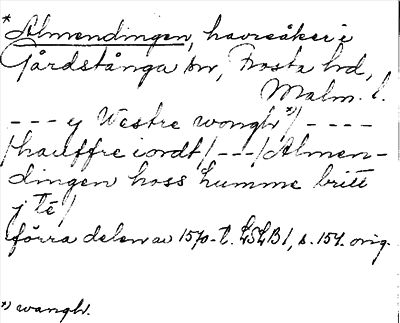 *Almendingen, havreåker i
Gårdstånga sn, Frosta hd,
Malm. l.
--- y Westre wongh*)/ ----
/hauffre iordt/ ---/Almen-
dingen hoss humme britt
j tê/
förra delen av 1570-t. LSLB1, s. 154. orig.
*) wanghr.